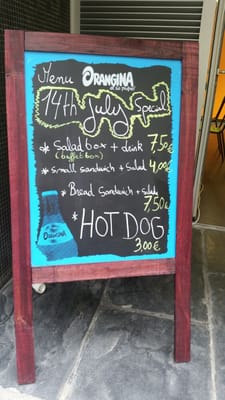 Menu ORANGINA
14th July Special
* Salad box + drink 7,50€
(buffet box)
* small sandwich + Salad 4,00€
* Bread Sandwich + Salad
7,50€
* HOT DOG
3,00€
ORANGINA